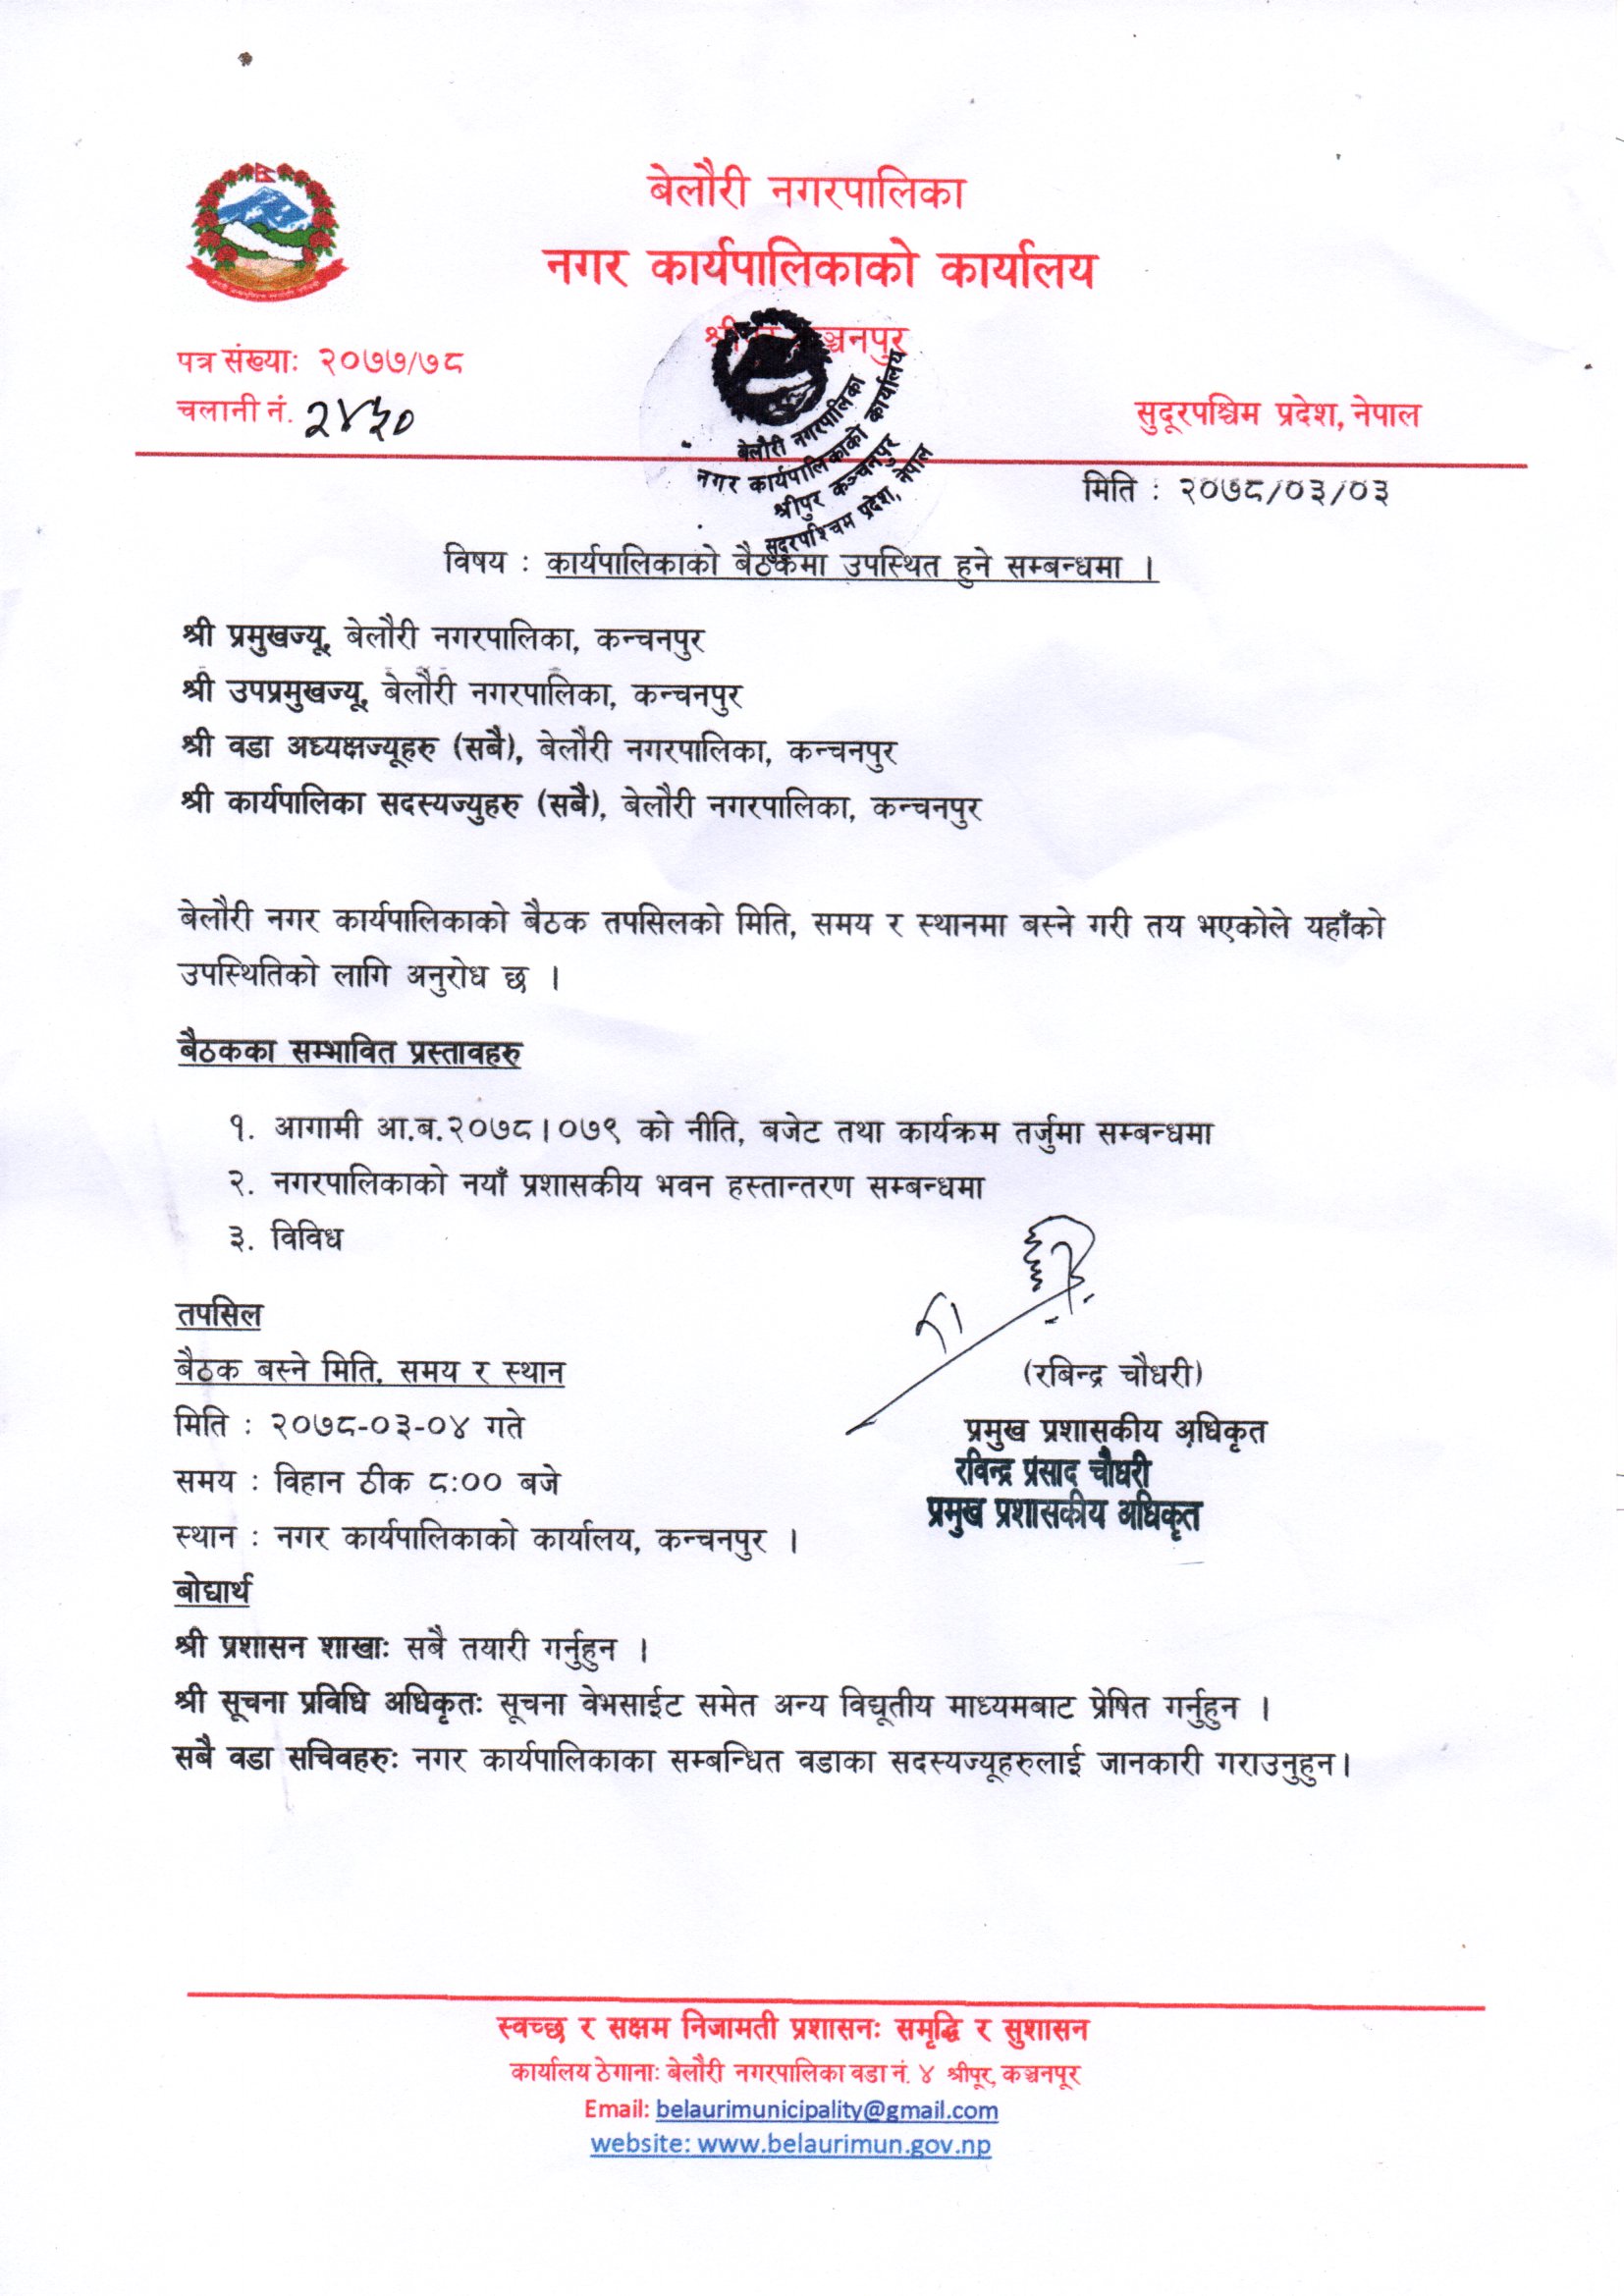 बेलौरी नगरपालिका
नगर कार्यपालिकाको कार्यालय
पत्र संख्याः २०७७/७८
चलानी नं. २४५०
सुदूरपश्चिम प्रदेश, नेपाल
बेलौरी नगरपालिका
नगर कार्यपालिकाको कार्यालय
श्रीपुर कञ्चनपुर
सुदुरपश्चिम प्रदेश, नेपाल
मिति : २०७८/०३/०३
विषय : कार्यपालिकाको बैठकमा उपस्थित हुने सम्बन्धमा ।
श्री प्रमुखज्यू, बेलौरी नगरपालिका, कन्चनपुर
श्री उपप्रमुखज्यू, बेलौरी नगरपालिका, कन्चनपुर
श्री वडा अध्यक्षज्यूहरु (सबै), बेलौरी नगरपालिका, कन्चनपुर
श्री कार्यपालिका सदस्यज्युहरु (सबै), बेलौरी नगरपालिका, कन्चनपुर
बेलौरी नगर कार्यपालिकाको बैठक तपसिलको मिति, समय र स्थानमा बस्ने गरी तय भएकोले यहाँको
उपस्थितिको लागि अनुरोध छ ।
बैठकका सम्भावित प्रस्तावहरु
१. आगामी आ.ब.२०७८।०७९ को नीति, बजेट तथा कार्यक्रम तर्जुमा सम्बन्धमा
२. नगरपालिकाको नयाँ प्रशासकीय भवन हस्तान्तरण सम्बन्धमा
३. विविध
तपसिल
बैठक बस्ने मिति, समय र स्थान
(रबिन्द्र चौधरी)
मिति : २०७८-०३-०४ गते
प्रमुख प्रशासकीय अधिकृत
रविन्द्र प्रसाद चौधरी
प्रमुख प्रशासकीय अधिकृत
समय : विहान ठीक ८:०० बजे
स्थान : नगर कार्यपालिकाको कार्यालय, कन्चनपुर ।
बोद्यार्थ
श्री प्रशासन शाखाः सबै तयारी गर्नुहुन ।
श्री सूचना प्रविधि अधिकृतः सूचना वेभसाईट समेत अन्य विद्यूतीय माध्यमबाट प्रेषित गर्नुहुन ।
सबै वडा सचिवहरुः नगर कार्यपालिकाका सम्बन्धित वडाका सदस्यज्यूहरुलाई जानकारी गराउनुहुन।
स्वच्छ र सक्षम निजामती प्रशासनः समृद्धि र सुशासन
कार्यालय ठेगानाः बेलौरी नगरपालिका वडा नं. ४ श्रीपूर, कञ्चनपूर
Email: belaurimunicipality@gmail.com
website: www.belaurimun.gov.np